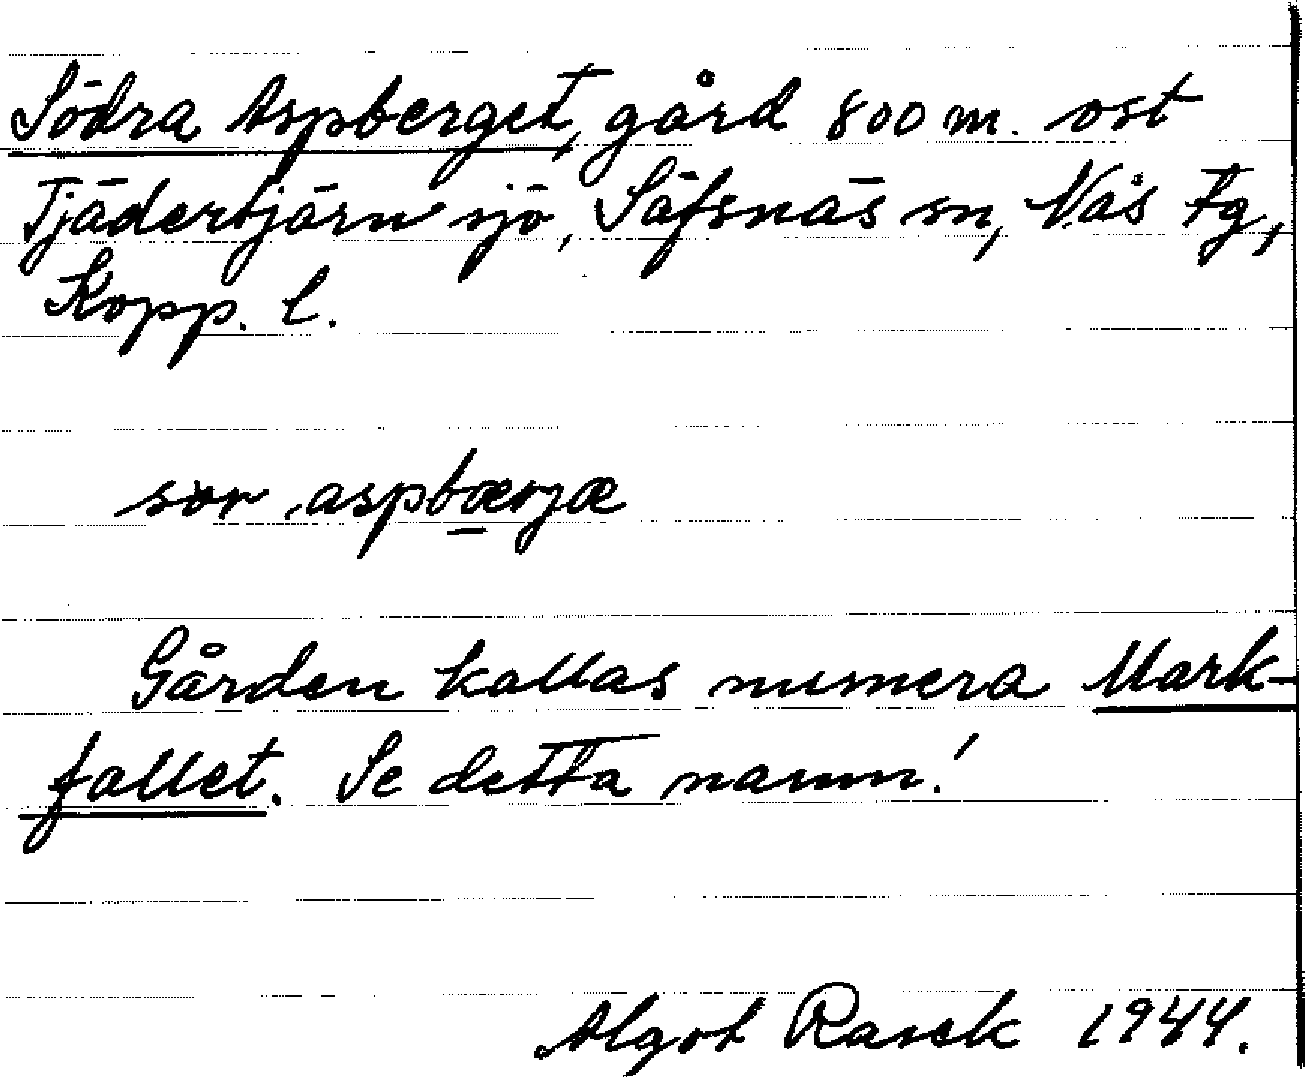 Södra Aspberget, gård 800 m. ost
Tjädertjärn sjö, Säfsnäs sn, Nås tg,
Kopp. l.
sør aspbærjæ
Gården kallas numera Mark-
fallet. Se detta namn!
Algot Rasck 1944.